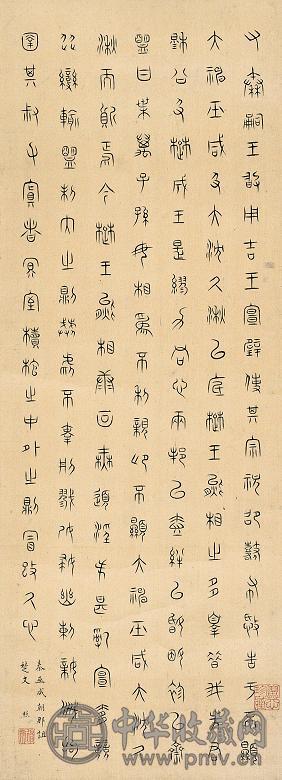 又秦嗣王敢用吉玉宣璧使其宗祝邵鼛布憝告于不顯
大神巫咸及大沈久湫以底楚王熊相之多辠昔我先君
穆公及楚成王是繆力同心兩邦以壹絆以婚姻袗以齋
盟曰枼萬子孫毋相為不利親卬不顯大神巫咸大沈久
湫而質焉今楚王熊相康回無道淫失甚亂宣奓競
從變輸盟制內之則暴虐不辜刑戮孕婦幽刺親戚拘
圉其叔父寘者冥室櫝棺之中外之則冒改久心
秦巫咸朝那詛
楚文
中华收藏网
www.pmv.cn